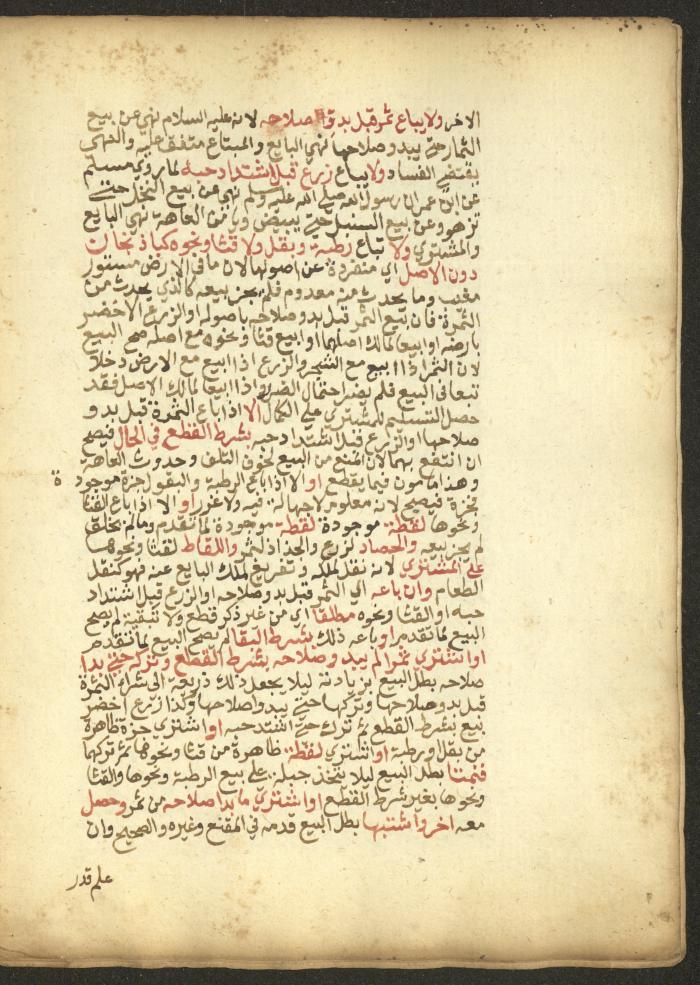 الاخر ولا يباع ثمر قبل بدو صلاحه لانه عليه السلام نهى عن بيع
الثمار حتى يبدو صلاحها نهى البايع والمبتاع متفق عليه والنهي
يقتضي الفساد ولا يباع زرع قبل اشتداد حبه لما روى مسلم
عن ابن عمر ان رسول الله صلى الله عليه وسلم نهى عن بيع النخل حتى
تزهو وعن بيع السنبل حتى يبيض ويامن العاهة نهى البايع
والمشتري ولا تباع رطبة وبقل ولا قثا ونحوه كباذنجان
دون الاصل اي منفردة عن اصولها لان ما في الارض مستور
مغيب وما يحدث منه معدوم فلم يجز بيعه كالذي يحدث من
الثمرة فان بيع الثمر قبل بدو صلاحه باصوله او الزرع الاخضر
بارضه او ابيعا لمالك اصلهما او ابيع قثا ونحوه مع اصله صح البيع
لان الثمر اذا ابيع مع الشجر والزرع اذا ابيع مع الارض دخلا
تبعا في البيع فلم يضر احتمال الضرر واذا ابيعا لمالك الاصل فقد
حصل التسليم للمشتري على الكمال الا اذا باع الثمرة قبل بدو
صلاحها او الزرع قبل اشتداد حبه بشرط القطع في الحال فيصح
ان انتفع بهما لان المنع من البيع لخوف التلف وحدوث العاهة
وهذا مامون فيما يقطع او الا اذا باع الرطبة والبقول جزة موجودة
فجزة فيصح لانه معلوم لا جهالة فيه ولا غرر او الا اذا باع القثا
ونحوها لقطة موجودة لقطة موجودة لما تقدم وما لم يخلق
لم يجز بيعه والحصاد لزرع والجذاذ لثمر واللقاط لقثا ونحوها
على المشتري لانه نقل لملكه وتفريغ لملك البايع عنه فهو كنقل
الطعام وان باعه اي الثمر قبل بدو صلاحه او الزرع قبل اشتداد
حبه او القثا ونحوه مطلقا اي من غير ذكر قطع ولا تبقية لم يصح
البيع لما تقدم او باعه ذلك بشرط البقا لم يصح البيع لما تقدم
او اشترى ثمرا لم يبد صلاحه بشرط القطع وتركه حتى بدا
صلاحه بطل البيع بزيادته ليلا يجعل ذلك ذريعة الى شراء الثمرة
قبل بدو صلاحها وتركها حتى يبدو صلاحها وكذا زرع اخضر
بيع بشرط القطع ثم ترك حتى اشتد حبه او اشترى جزة ظاهرة
من بقل او رطبة او اشترى لقطة ظاهرة من قثا ونحوها ثم تركهما
فنمتا بطل البيع ليلا يتخذ حيلة على بيع الرطبة ونحوها والقثا
ونحوها بغير شرط القطع او اشترى ما بدا صلاحه من ثمر وحصل
معه اخر واشتبها بطل البيع قدمه في المقنع وغيره والصحيح وان
علم قدر